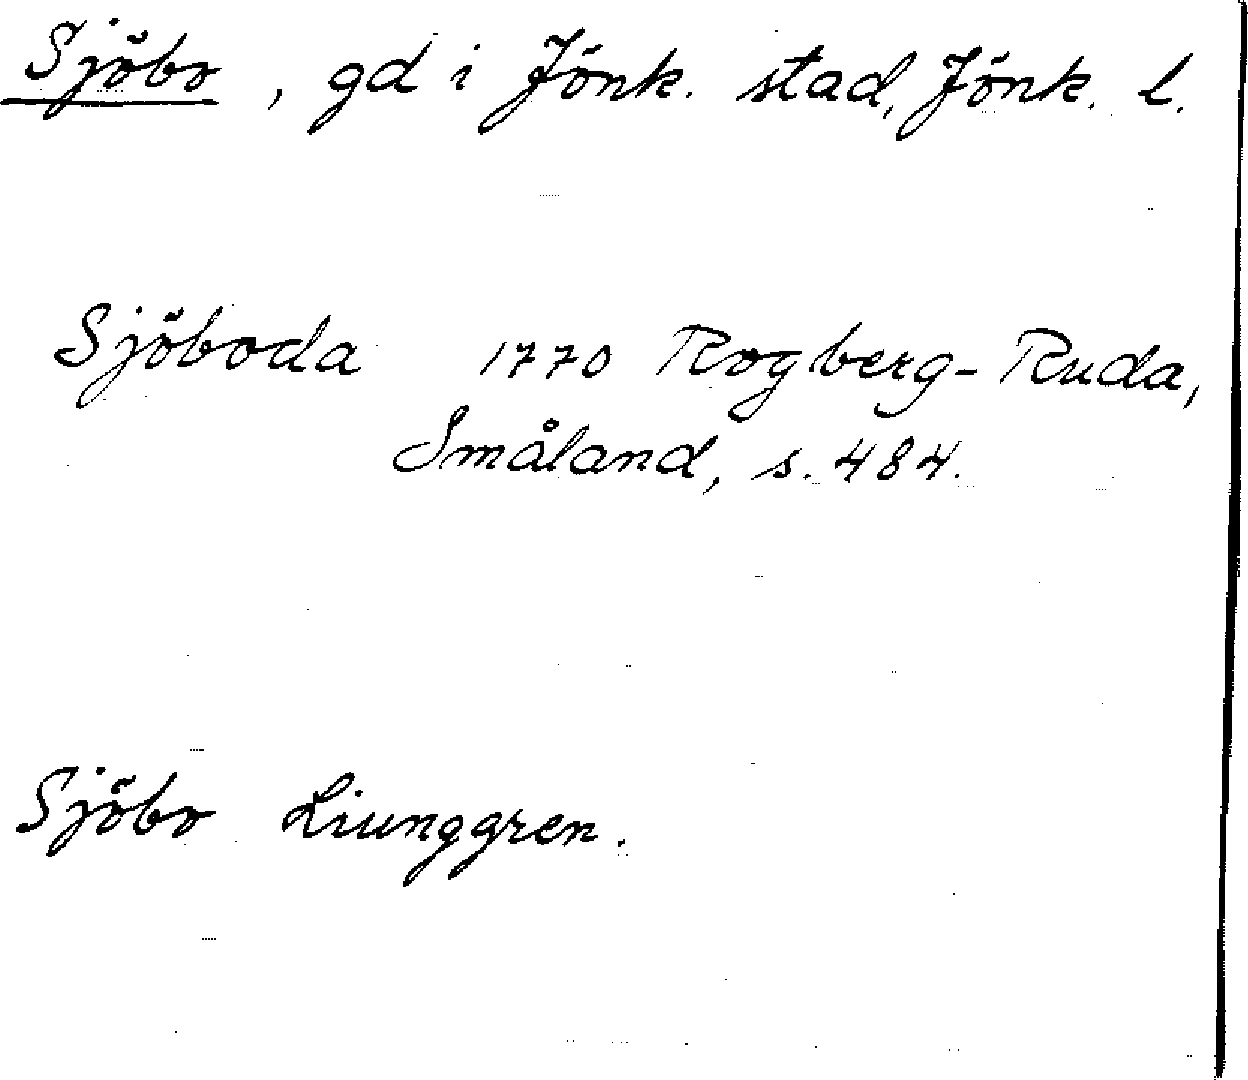 Sjöbo, gd i Jönk. stad, Jönk. l.
Sjöboda 1770 Rogberg-Ruda,
Småland, s. 484.
Sjöbo Liunggren.